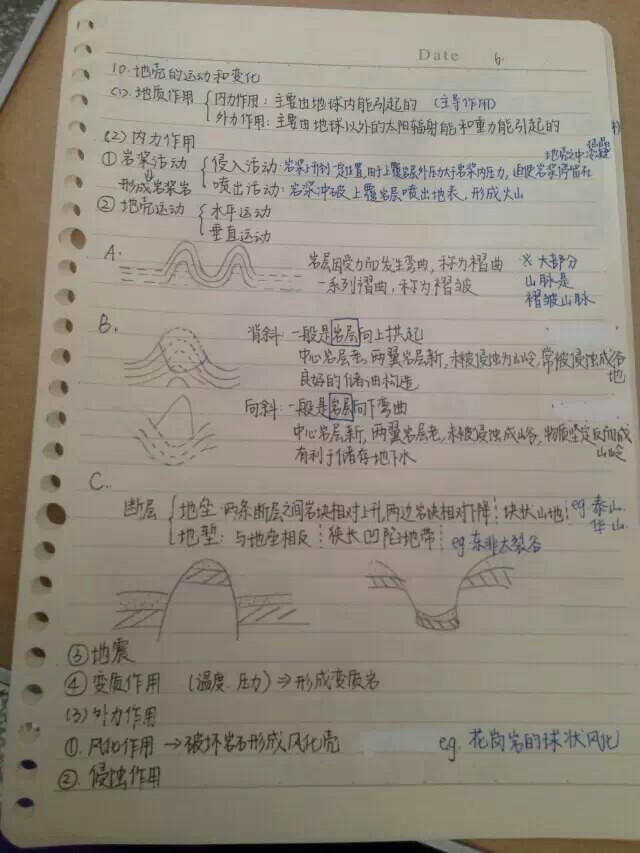 Date 6.
10. 地壳的运动和变化
(1). 地质作用 { 内力作用：主要由地球内能引起的 （主导作用）
外力作用：主要由地球以外的太阳辐射能和重力能引起的
(2) 内力作用
① 岩浆活动 { 侵入活动：岩浆上升到一定位置，由于上覆岩层外压力大于岩浆内压力，迫使岩浆停留在地壳之中冷凝
⇓
形成岩浆岩 喷出活动：岩浆冲破上覆岩层喷出地表，形成火山
② 地壳运动 { 水平运动
垂直运动
A.
岩层因受力而发生弯曲，称为褶曲 ※大部分
一系列褶曲，称为褶皱 山脉是
褶皱山脉
B.
背斜：一般是岩层向上拱起
中心岩层老，两翼岩层新，未被侵蚀为山岭，常被侵蚀成谷地
良好的储油构造
向斜：一般是岩层向下弯曲
中心岩层新，两翼岩层老，未被侵蚀成山谷，物质坚定反而成山岭
有利于储存地下水
C.
断层 { 地垒：两条断层之间岩块相对上升，两边岩块相对下降 块状山地 eg 泰山
华山
地堑：与地垒相反 狭长凹陷地带 eg 东非大裂谷
③ 地震
④ 变质作用 （温度.压力）⇒形成变质岩
(3) 外力作用
①. 风化作用 →破坏岩石形成风化壳 eg. 花岗岩的球状风化
②. 侵蚀作用